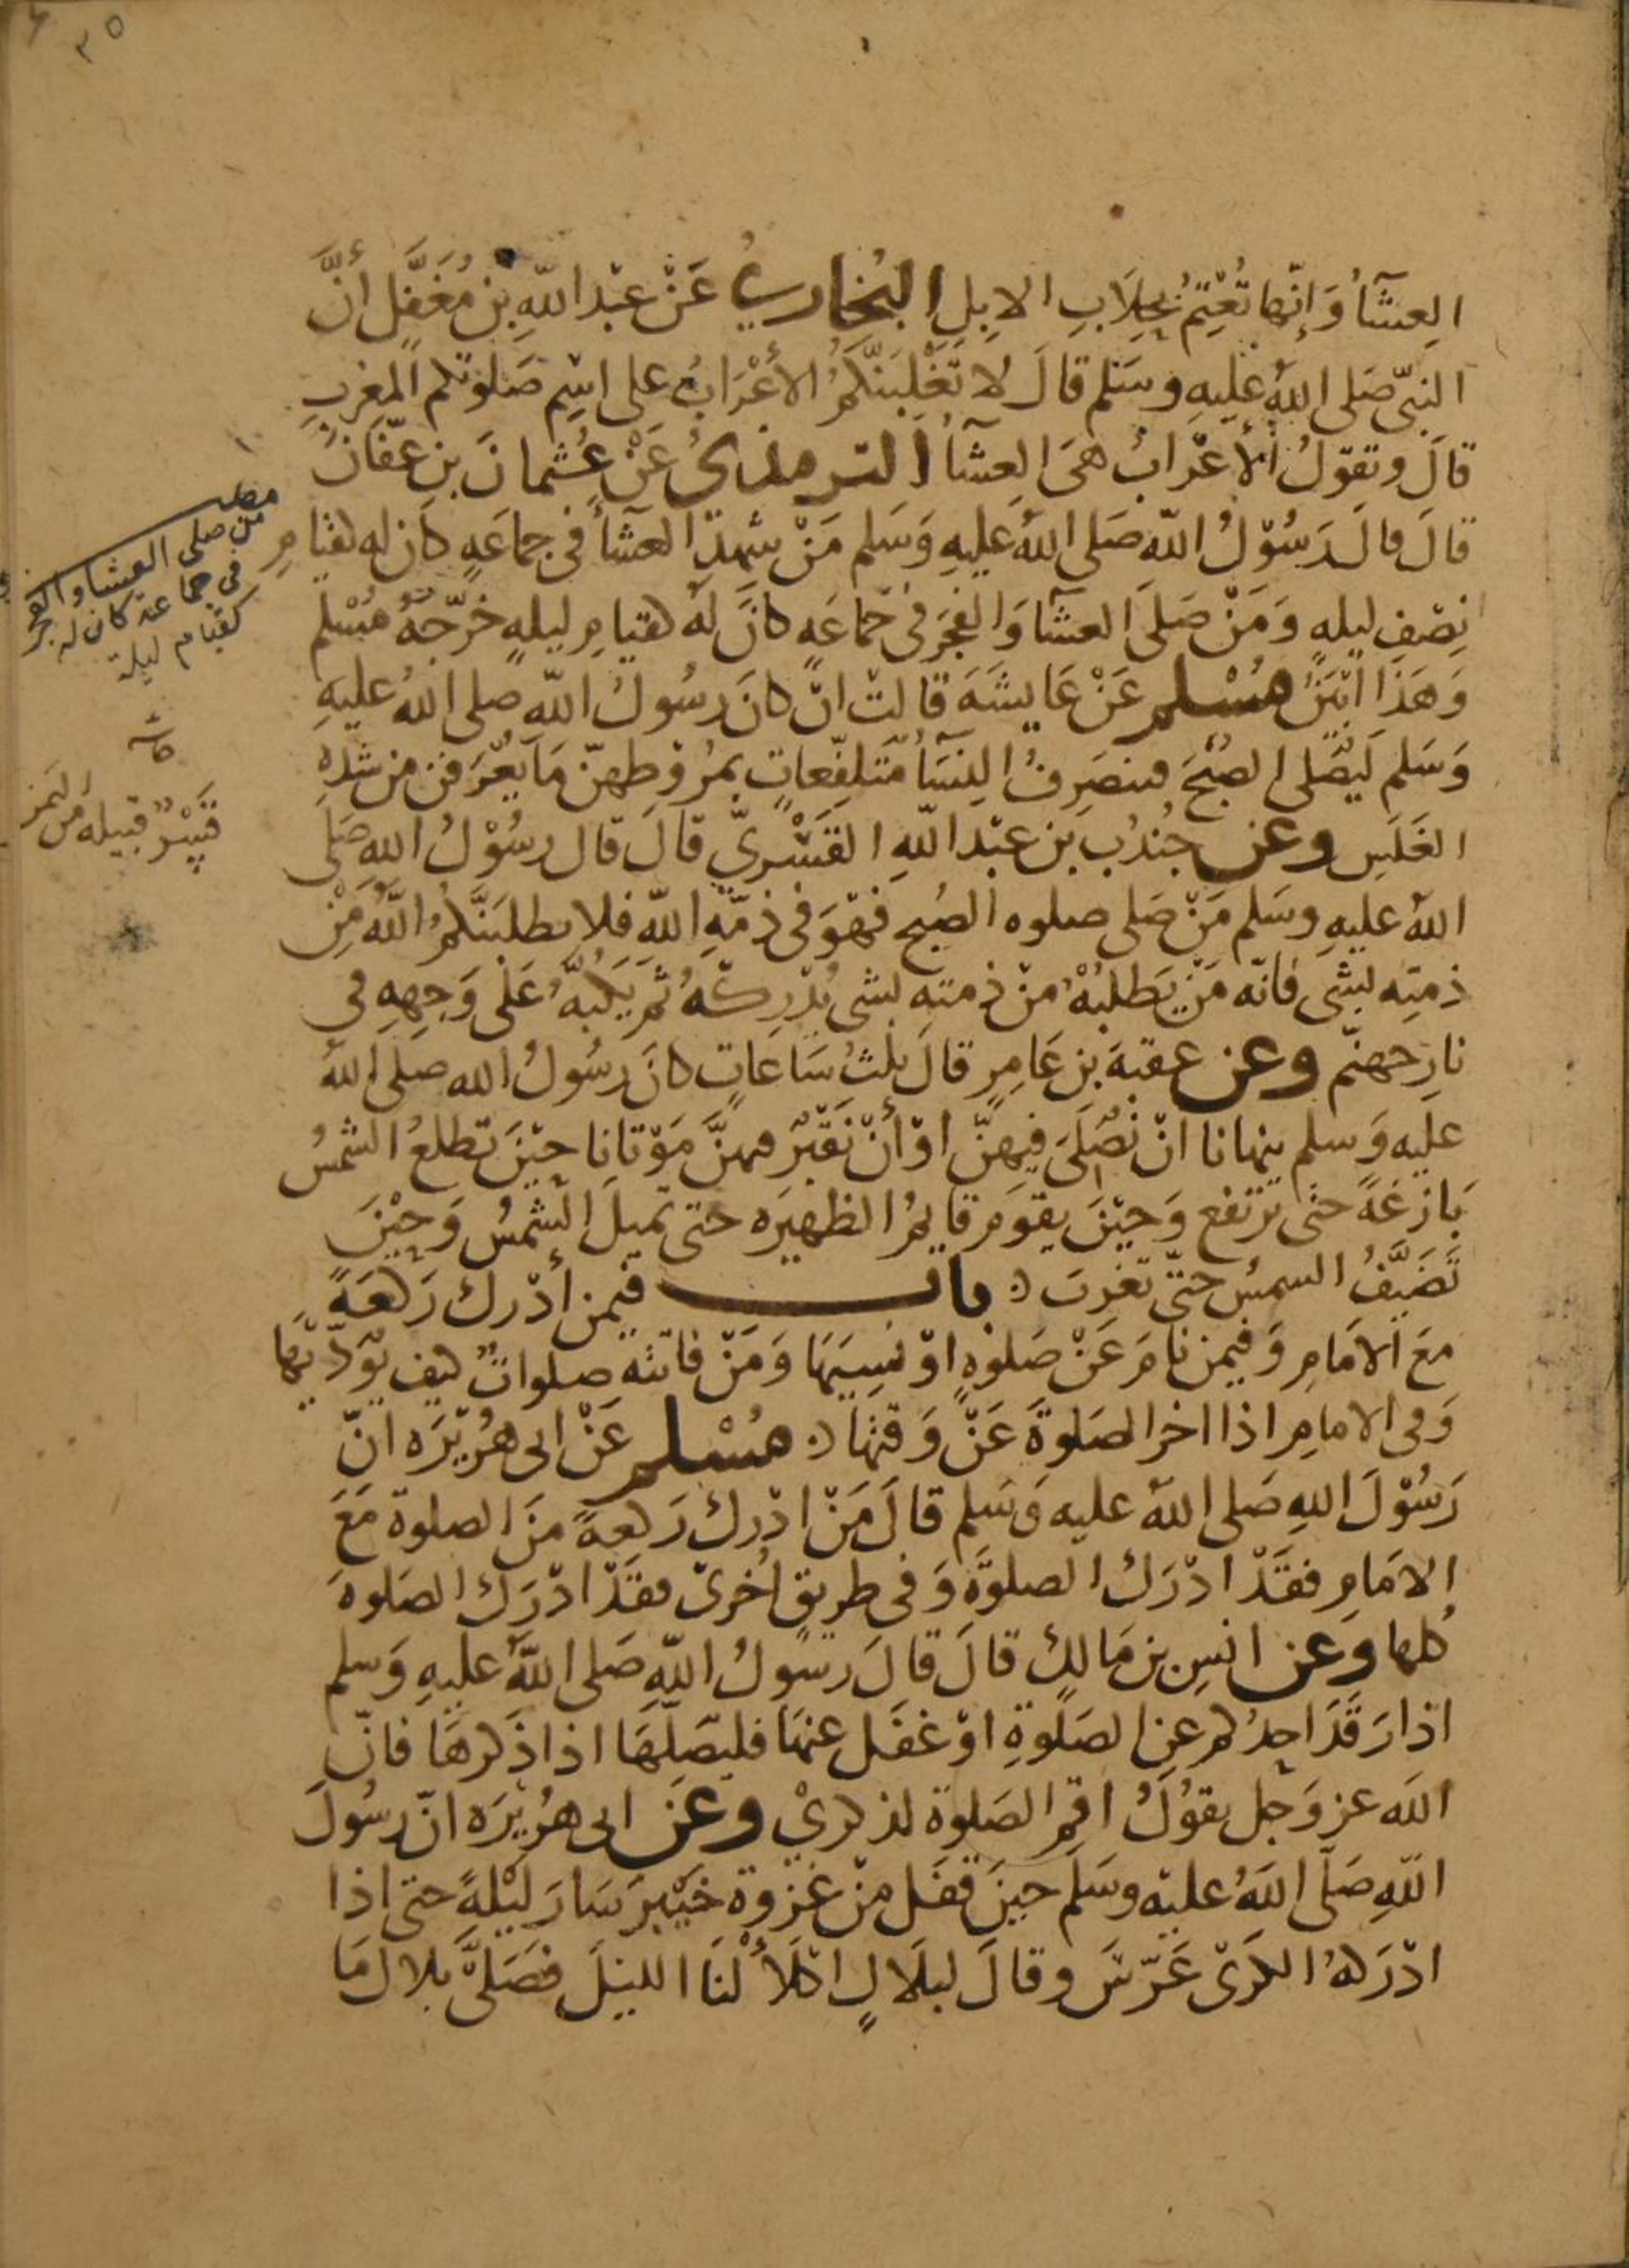 ٣٥
العِشَآءُ وَإنّها تُعْتِمُ بحِلَابِ الابِلِ البُخَاريُ عَنْ عَبْدِ اللّهِ بْنِ مُغَفَّلٍ أنَّ
النبيّ صَلى اللهُ عَليهِ وسَلم قالَ لا تَغْلِبَنّكمُ الأَعْرَابُ على اسْمِ صَلوتكم المَغرِبِ
قالَ وتقولُ الأعْرَابُ هىَ العِشَآءُ الترمذىُ عَنْ عُثمانَ بنِ عَفّانَ
قالَ قالَ رَسُوْلُ اللّه صَلى اللهُ عَليهِ وَسَلم مَنْ شَهِدَ العشَآءَ فى جماعَةٍ كان له كقيامِ
نِصْفِ ليلهٍ وَمَنْ صَلىَ العشآ وَالفجرَ فى جَماعَهٍ كانَ لَهُ كقيامِ ليلهٍ خَرّجَهُ مُسْلم
وَهَذَا ابْيَنُ مُسْلم عَنْ عَايشَهَ قالتْ انْ كانَ رسُولُ اللّه صلى اللهُ عليهِ
وَسَلم لَيُصَلى الصُبْحَ فينصَرِفُ النِسَآءُ مُتَلفّعاتٍ بمُرُوطِهنّ مَا يُعْرَفنَ من شدهِ
الغَلَسِ وعن جُنْدُبِ بن عَبْدِ اللّهِ القَسْريّ قالَ قال رسُوْلُ اللهِ صَلى
اللهُ عليهِ وسَلم مَنْ صَلى صلوه الصُبحِ فهْوَ فى ذمّهِ اللّهِ فلا يطلبَنَّكمُ اللّهُ مِنْ
ذمتِه بشَى فانّه مَنْ يَطلبْهُ منْ ذمته بشى يُدْرِكْهُ ثُمّ يَكُبَّهُ عَلى وَجهِهِ في
نارِ جهنّم وعن عقبهَ بن عَامِرٍ قالَ ثلثُ سَاعَاتٍ كانَ رسُولُ الله صلى اللهُ
عليه وَسلم ينهانا انْ نُصَلىَ فيهِنّ اوْ أنْ نَقْبُرَ فهنَّ مَوْتانا حيْنَ تطلعُ الشمسُ
بَازغَةً حتى ترتفع وَحيْنَ يقومَ قايمُ الظهيرَه حتى تميلَ الشمسُ وَحيْنَ
تَضَيّفُ الشمسُ حتّى تغربَ باب فيمن أدْركَ رَكعَةً
مَعَ الامَامِ وَفيمن نامَ عَنْ صَلوهٍ اوْ نسِيَهَا وَمَنْ فاتتْه صلواتٌ كيف يؤدّيَها
وَفى الامامِ اذا اخر الصَلوةَ عَنْ وَقتها مُسْلم عَنْ ابى هُرَيْرَه انّ
رَسُوْلَ اللهِ صَلى اللهُ عليه وَسَلم قالَ مَنْ ادْركَ رَكعةً منَ الصلوة مَعَ
الامَامِ فقَدْ ادْرَكَ الصلوةَ وَفى طريقٍ اُخرىْ فقَدْ ادْرَكَ الصَلوهَ
كُلها وَعن انسِ بن مَالكٍ قالَ قالَ رسُولُ اللّهِ صَلى اللّهُ عليهِ وَسلم
اذا رَقَدَ احدُكم عن الصَلوةِ اوْ غفَل عنهَا فليصَلّهَا اذا ذَكرهَا فانّ
اللَه عز وَجل يقوْلُ اقم الصَلوة لذكريْ وعَن ابى هُرَيْرَه انّ رسُولَ
اللّهِ صَلّى اللهُ عليْه وسَلّم حينَ قفَل منْ غزوة خيْبرَ سَارَ ليْلهً حتى اذا
ادْرَكهُ الكرىْ عَرّسَ وقالَ لبلَالٍ اكلأْ لنَا الليْلَ فصَلىَّ بلال مَا
مطلب
من صلى العشا والفجر
فى جماعة كان له
كقيام ليلة
قَسْرٌ قبيله من اليمن